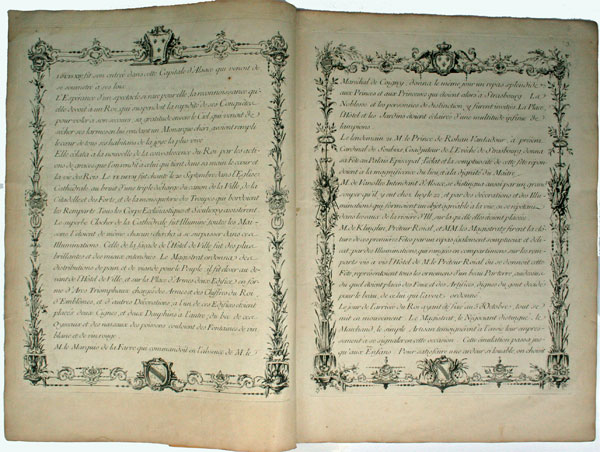 fit son entrée dans cette Capitale d'Alsace qui venoit de
se soumettre à ses loix.
L'Esperance d'un spectacle si rare pour elle, la reconnoissance qu'-
elle devoit à un Roi, qui suspendoit la rapidité de ses Conquêtes
pour voler à son secours, sa gratitude envers le Ciel qui venoit de
sécher ses larmes en lui rendant un Monarque cheri, avoient rempli
le cœur de tous ses habitans de la joye la plus vive.
Elle éclata à la nouvelle de la convalescence du Roi par les acti-
ons de graces que l'on rendit à celui qui tient dans sa main le cœur et la
vie des Rois. Le fut chanté le 20 Septembre dans l'Eglise
Cathédrale au bruit d'une triple décharge du canon de la Ville, de la
Citadelle et des Forts, et de la mousqueterie des Troupes qui bordoient
les Remparts. Tous les Corps Ecclesiastiques et Seculiers y assisterent.
Le superbe Clocher de la Cathédrale fut Illuminé, toutes les Mai-
sons l'étoient de même, chacun cherchoit à se surpasser dans ces
Illuminations. Celle de la façade de l'Hôtel de Ville fut des plus
brillantes et des mieux entendues. Le Magistrat ordonna des
distributions de pain, et de viande pour le Peuple, il fit élever au de-
vant de l'Hôtel de Ville, et sur la Place d'Armes deux Edifices en for-
me d'Arcs Triomphaux chargés des Armes et des Chiffres du Roi
d'Emblêmes, et d'autres Décorations; à l'un de ces Edifices étoient
placés deux Cignes, et deux Dauphins à l'autre, du bec de ces
Oyseaux et des naseaux des poissons couloient des Fontaines de vin
blanc et de vin rouge.
M. le Marquis de la Farre qui commandoit en l'absence de M. le
Maréchal de Coigny, donna le même jour un repas splendide
aux Princes et aux Princesses qui étoient alors à Strasbourg. La
Noblesse et les personnes de distinction y furent invitées. La Place,
l'Hôtel et les Jardins étoient éclairés d'une multitude infinie de
lampions.
Le lendemain M. le Prince de Rohan Vantadour, à présent
Cardinal de Soubise, Coadjuteur de l'Evêché de Strasbourg donna
sa Fête au Palais Episcopal, l'éclat et la somptuosité de cette fête répon-
doient à la magnificence du lieu et à la dignité du Maître.
M. de Vanolles Intendant d'Alsace, se distingua aussi par un grand
souper qu'il y eut chez luy le et par des décorations et des Illu-
minations qui formoient un objet agréable à la vue, se répetant
dans les eaux de la riviere d'Ill, sur laquelle elles étoient placées.
M. de Klinglin, Preteur Royal, et MM. les Magistrats firent la clôtu-
re de ces premieres Fêtes par un repas également somptueux et déli-
cat par des Illuminations rangées en compartimens sur les rem-
parts vis à vis l'Hôtel de M. le Preteur Royal où se donnoit cette
Fête, représentoient tous les ornemens d'un beau Parterre, au dessus
du quel étoient placés des Feux et des Artifices, dignes du goût décidé
pour le beau, de celui qui l'avoit ordonné.
Le jour de l'arrivée du Roi ayant été fixé au 5 d'Octobre, tout se
mit en mouvement. Le Magistrat, le Négociant distingué, le
Marchand, le simple Artisan témoignerent à l'envie leur empres-
sement à se signaler en cette occasion. Cette émulation passa jus-
qu'aux Enfans. Pour satisfaire une ardeur si louable, on choisit